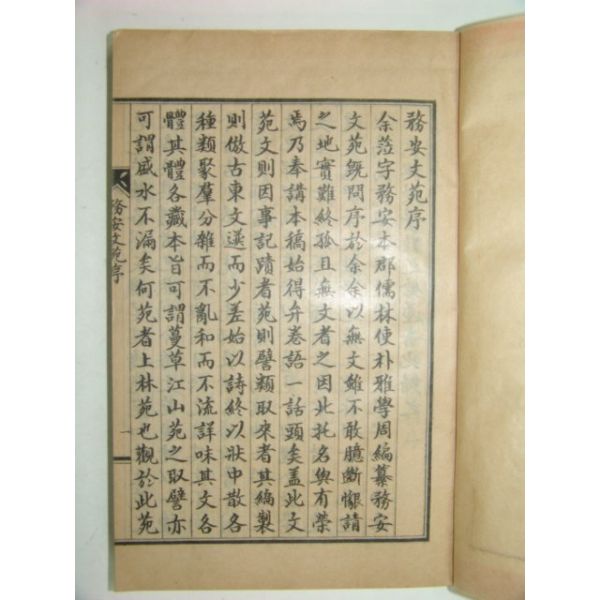 務安文苑序
余莅字務安本郡儒林使朴雅學周編纂務安
文苑旣問序於余余以無文雖不敢臆斷懇請
之地實難終孤且無文者之因此托名與有榮
焉乃奉講本稿始得弁卷語一話頭矣盖此文
苑文則因事記蹟者苑則譬類取來者其編製
則倣古東文選而少差始以詩終以狀中散各
種類聚羣分雜而不亂和而不流詳味其文各
體其體各藏本旨可謂蔓草江山苑之取譬亦
可謂盛水不漏矣何苑者上林苑也觀於此苑
務安文苑序
一